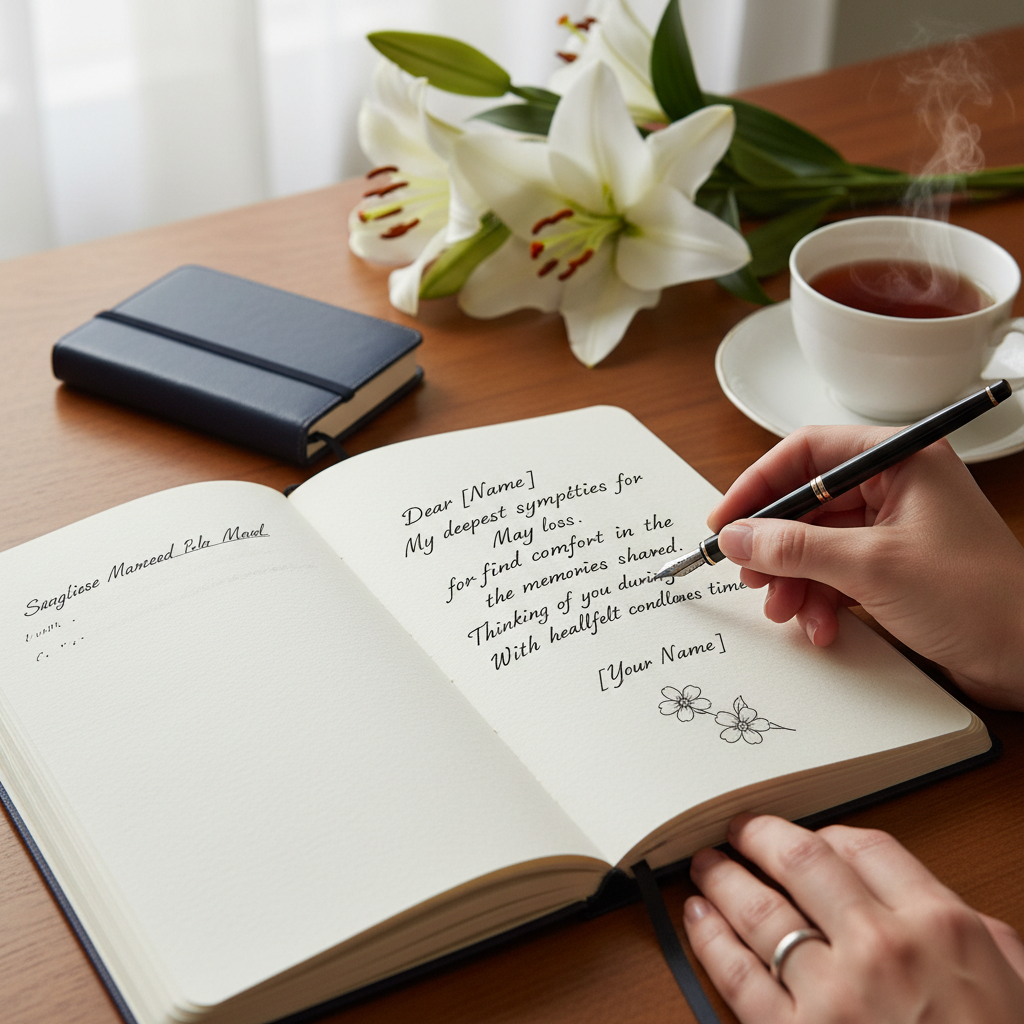 Snagliose Mameed Pelr Maud
Dear [Name]
My deepest sympcties for
May loss.
for find comfort in the
the memories shared.
Thinking of you during
With heallfelt condloes time
[Your Name]